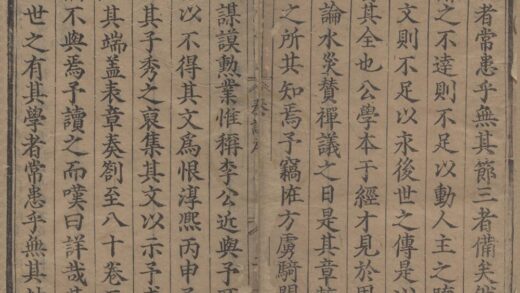 者常患乎無其節三者備矣然
之不達則不足以動人主之聽
文則不足以永後世之傳是以
其全也公學本于經才見於用
論水災贊禪議之日是其章
之所其知焉予竊恠方虜騎
謀謨勲業惟稱李公近與予
以不得其文為恨淳熙丙申
其子秀之裒集其文以示予
其端盖表章奏劄至八十卷
不與焉予讀之而嘆曰詳哉其
世之有其學者常患乎無其